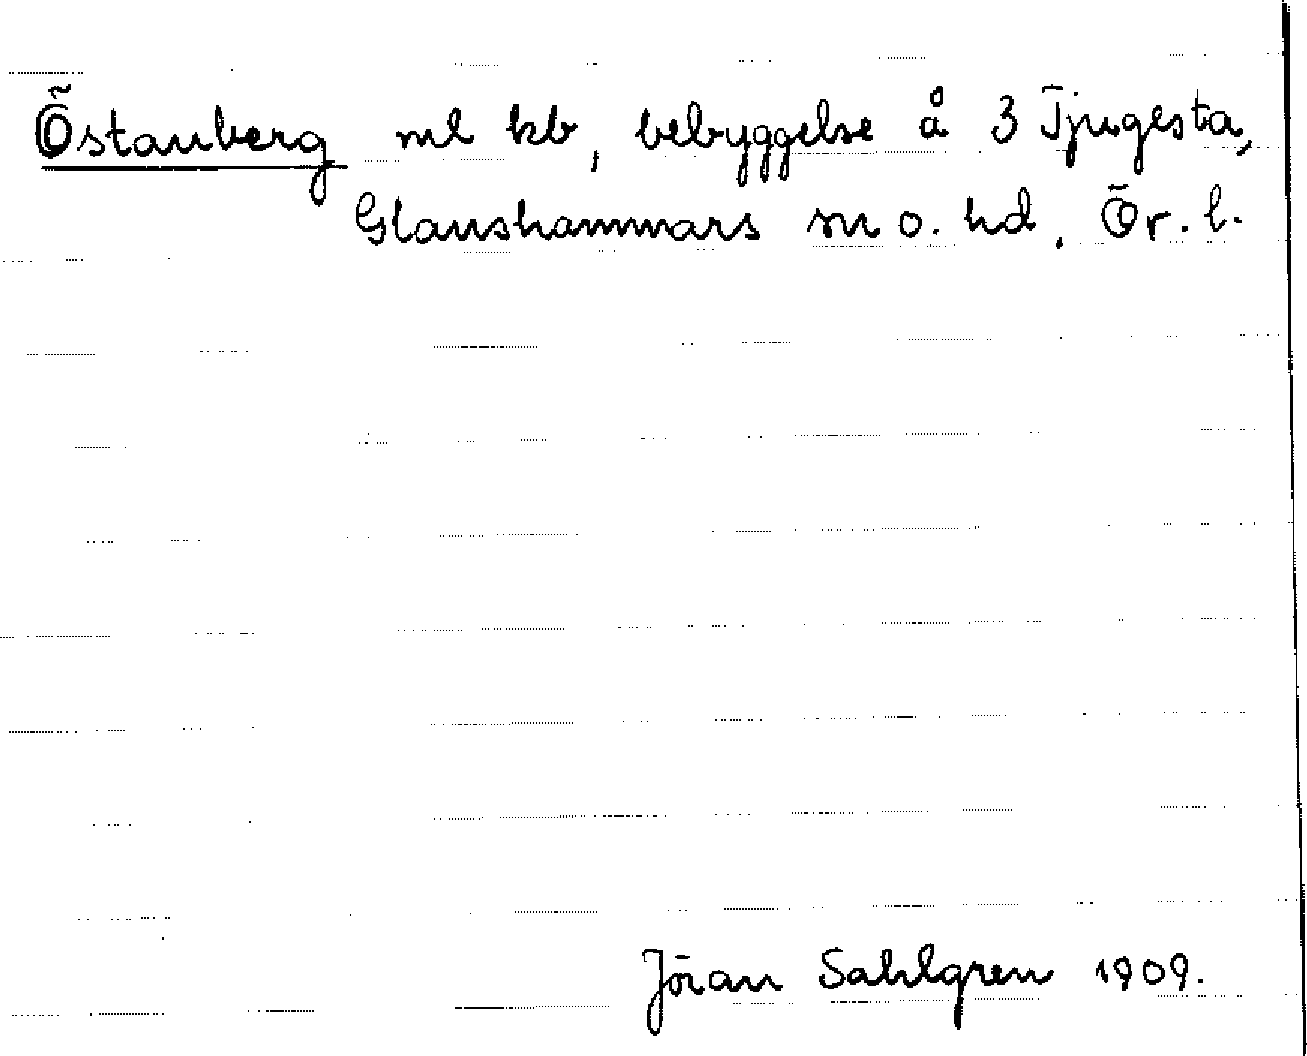 Östanberg ml kb, bebyggelse å 3 Tjugesta,
Glanshammars sn o. hd. Ör. l.
Jöran Sahlgren 1909.